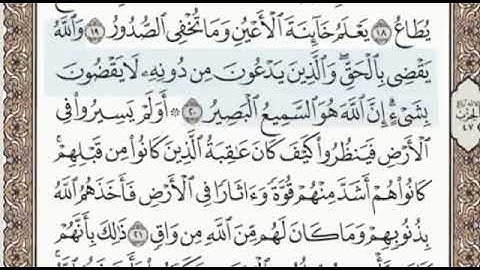 يُطَاعُ ١٨ يَعْلَمُ خَآئِنَةَ ٱلْأَعْيُنِ وَمَا تُخْفِى ٱلصُّدُورُ ١٩ وَٱللَّهُ
يَقْضِى بِٱلْحَقِّۖ وَٱلَّذِينَ يَدْعُونَ مِن دُونِهِۦ لَا يَقْضُونَ
بِشَىْءٍۗ إِنَّ ٱللَّهَ هُوَ ٱلسَّمِيعُ ٱلْبَصِيرُ ٢٠ ۞ أَوَلَمْ يَسِيرُوا۟ فِى
ٱلْأَرْضِ فَيَنظُرُوا۟ كَيْفَ كَانَ عَٰقِبَةُ ٱلَّذِينَ كَانُوا۟ مِن قَبْلِهِمْۚ
كَانُوا۟ هُمْ أَشَدَّ مِنْهُمْ قُوَّةً وَءَاثَارًا فِى ٱلْأَرْضِ فَأَخَذَهُمُ ٱللَّهُ
بِذُنُوبِهِمْ وَمَا كَانَ لَهُم مِّنَ ٱللَّهِ مِن وَاقٍ ٢١ ذَٰلِكَ بِأَنَّهُمْ
الحزب
٤٧